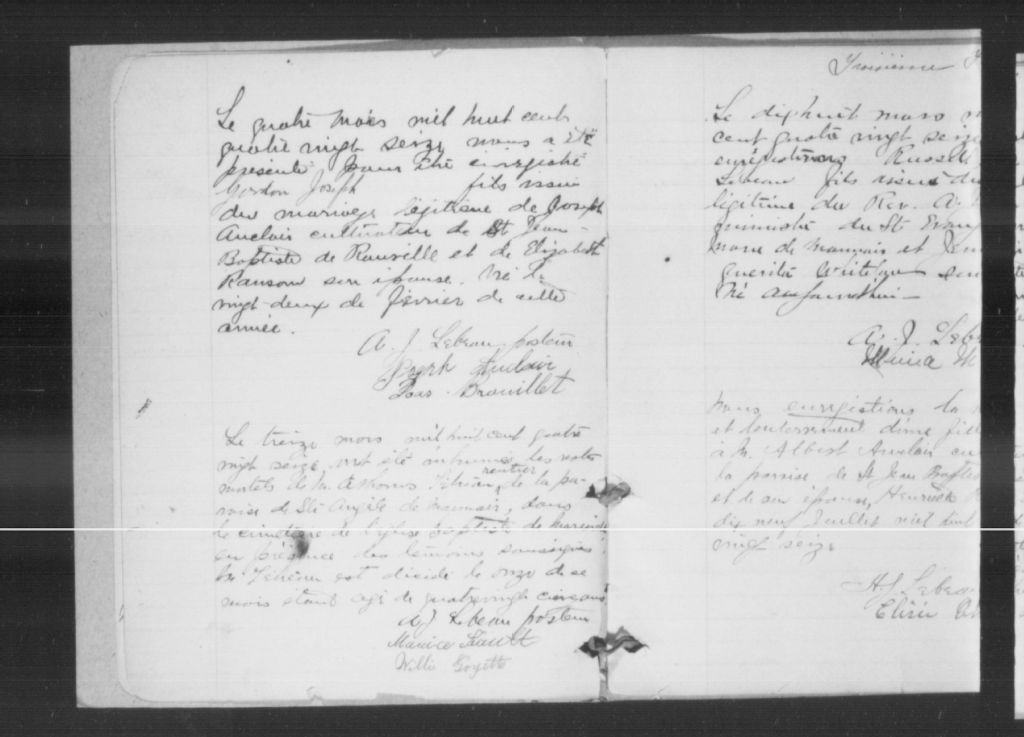 Le quatre mars mil huit cent
quatre vingt seize nous a été
présenté pour être enregistré
Gordon Joseph fils issu
du mariage légitime de Joseph
Auclair cultivateur de St Jean-
Baptiste de Rouville et de Elizabeth
Ransom son épouse. Né le
vingt-deux de février de cette
année.
A. J. Lebeau pasteur
Joseph Auclair
Brouillet
Le treize mars mil huit cent quatre
vingt seize ont été inhumés les restes
rentier
mortels de M. de la pa-
roisse de Ste Angèle de Monnoir, dans
le cimetière de l'église baptiste de Marieville
en présence des témoins soussignés
M. est décédé le onze de ce
mois étant agé de quatrevingt cinq ans
A. J. Lebeau pasteur
Willie Goyette
Troisième
Le dix huit mars
cent quatre vingt seize
enregistrons Russell
Lebeau fils issu du
légitime du Rev. A.
ministre du St Evan
et
Né aujourd'hui—
A. J. Leb
Nous enregistrons la
et l'enterrement d'une fille
à M. Albert Auclair cu
la paroisse de St Jean Baptis
et de son épouse,
dix neuf Juillet mil huit
vingt seize
A J. Lebeau